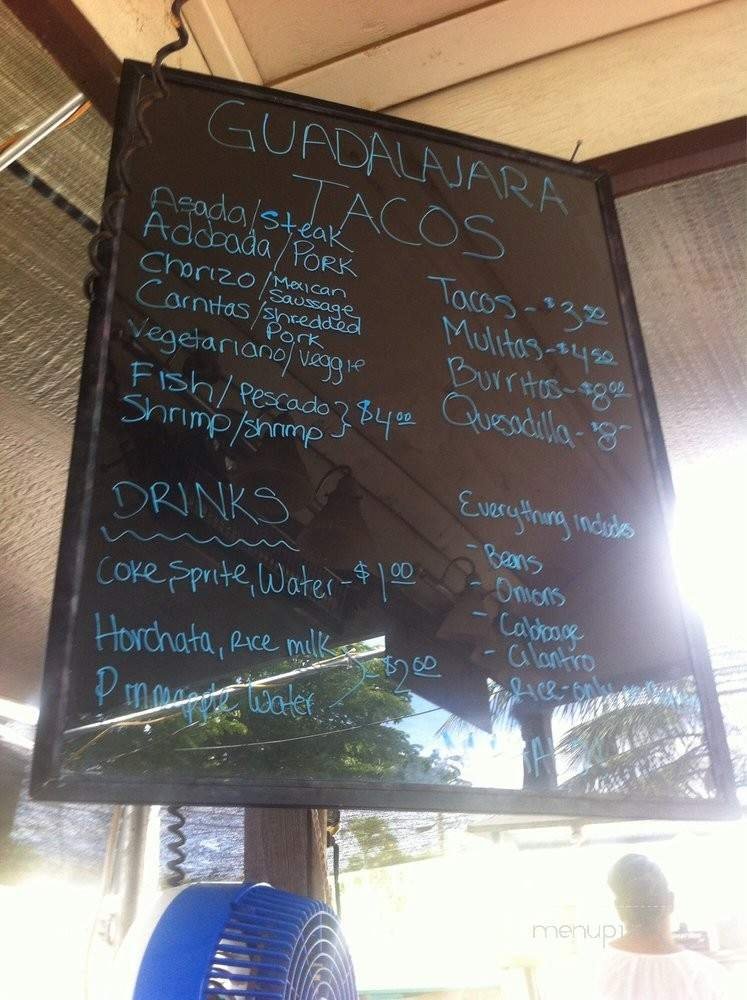 GUADALAJARA
TACOS
Asada/Steak
Adobada/PORK
Chorizo/Mexican
Saussage
Carnitas/shredded
Pork
Vegetariano/veggie
Fish/Pescado
Shrimp/shrmp } $4.00
Tacos - $3.00
Mulitas - $4.00
Burritos - $8.00
Quesadilla - $8-
DRINKS
Coke, Sprite, Water - $1.00
Horchata, Rice milk
Pinneapple Water } - $2.00
Everything includes
- Beans
- Onions
- Cabbage
- Cilantro
Rice - only
menupi